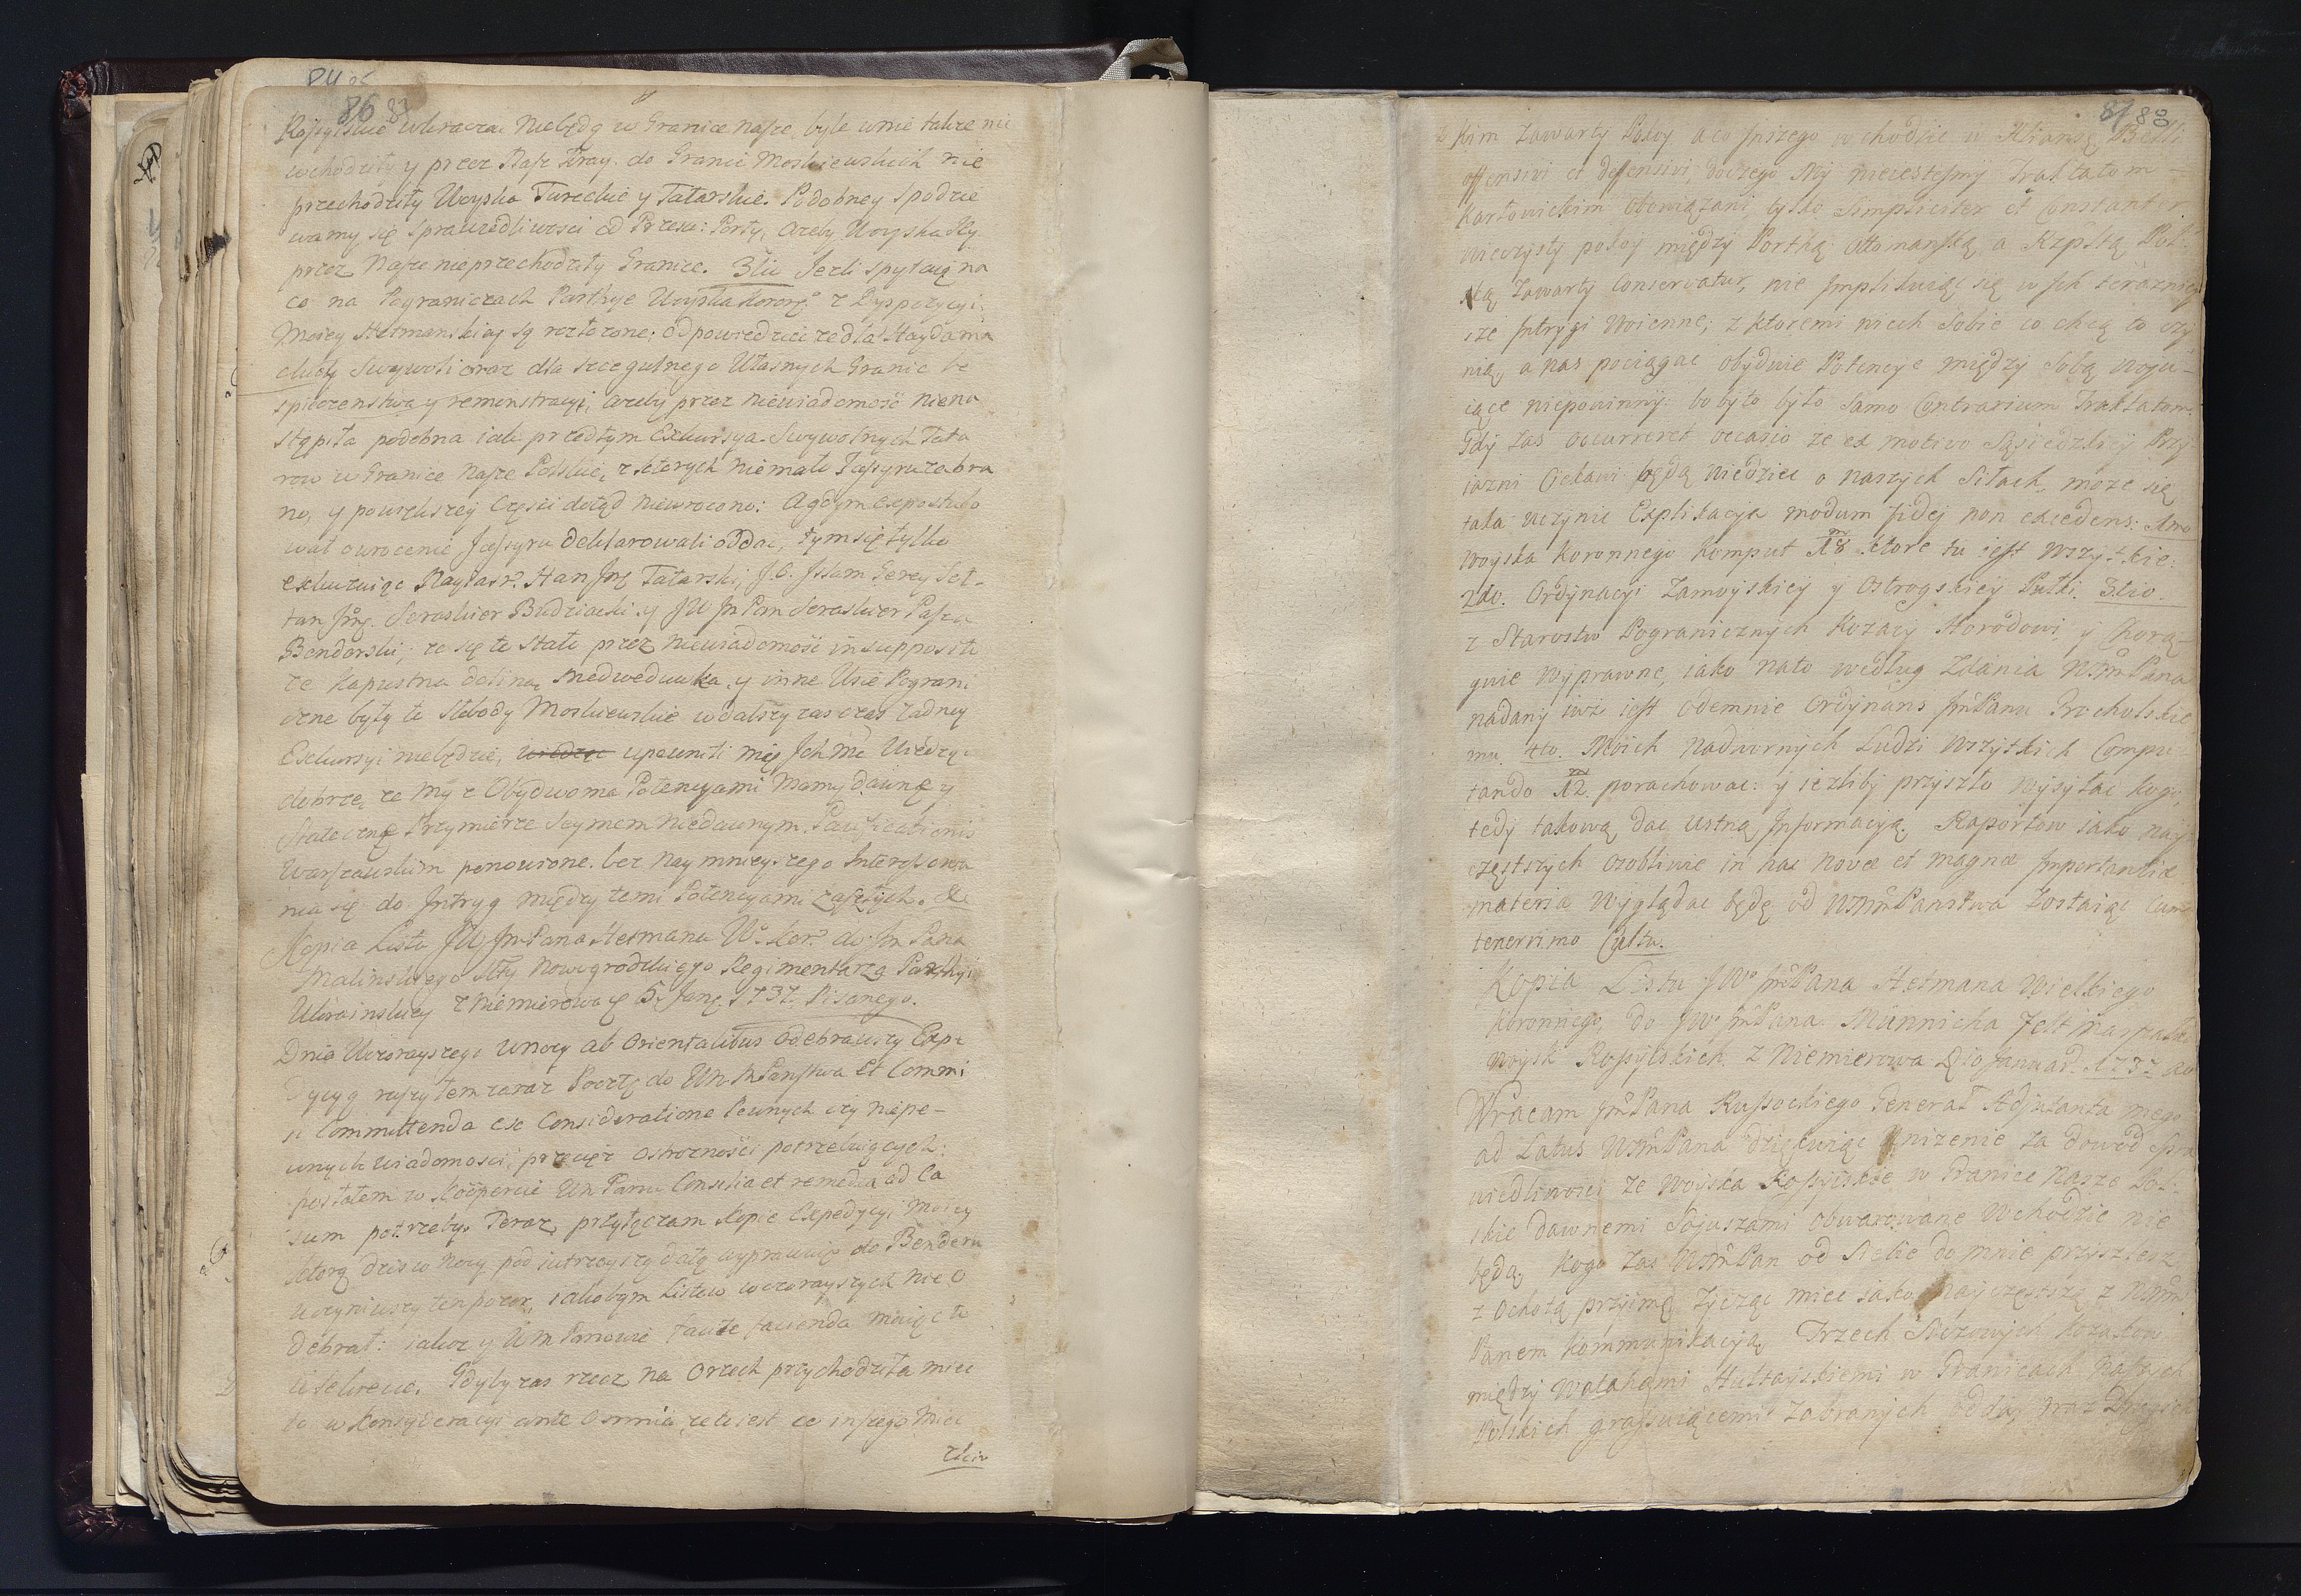 84
86
Rossyiskie wkraczac niebędą w Granice nasze, byle wnie także nie
wchodziły y przez Nasz Kray do Granic Moskiewskich nie
przechodziły Woyska Tureckie y Tatarskie. Podobney Spodzie
wamy się Sprawiedliwosci od Przesw: Porty, azeby Woyska Ry
przez Nasze nieprzechodziły Granice. 3tio Jezli spytaią na
co na Pograniczach Parthye Woyska Koron: z Dyspozycyi
Moiey Hetmanskiey są rozłozone; odpowiedziec ze dla Haydama
ckiey Swywoli oraz dla szczegulnego Własnych Granic be
spieczenstwa y remonstracyi, azeby przez niewiadomosc niena
stąpiła podobna iak przedtym Exkursya Swywolnych Tata
row w Granice nasze Polskie, z ktorych niemało Jassyru zabra
no, y powiększey Częsci dotąd niewrocono: A gdym expostulo
wał o wrocenie Jassyru deklarowali oddac, tym się tylko
exkuzuiąc Nayiasn: Han Jmc Tatarski J.O. Islam Gerey Soł-
tan Jmc. Seraskier Budziacki y JW Jm Pan Seraskier Pasza
Benderski; ze się to Stało przez niewiadomosc in supposito
ze Kapustna dolina, Medweduwka, y inne Wsie Pograni
czne były to Słobody Moskiewskie w dalszy zas czas zadney
Exkursyi niebędzie, wiedząc upewnili mię Ichmc Wiedzą
dobrze, ze my z Obydwoma Potencyami Mamy dawne y
Stateczne Przymierze Seymem niedawnym Pacificationis
Warszawskim ponowione. bez naymnieyszego Interessowa
nia się do Intryg między temi Potencyami zaszłych. &c
Kopia Listu JW Jm Pana Hetmana W. Kor. do Jm Pana
Malinskiego Stty Nowogrodzkiego Regimentarza Parthyi
Ukrainskiey z Niemirowa D 5. Jan. 1737. Pisanego.
Dnia Wczorayszego w nocy ab Orientalibus odebrawszy Expe
dycyą ruszyłem zaraz Pocztę do WM M Panstwa et Commi
si Committenda ex Consideratione Pewnych czy niepe-
wnych wiadomosci, przecięz ostroznosci potrzebuiących:
posłałem w Koopercie Wm Panu Consilia et remedia ad Ca
sum potrzeby. Teraz przyłączam Kopie Expedycyi Moiey
ktorą dzis w Nocy pod iutrzeyszą datą wyprawuię do Benderu
uczyniwszy ten pozor, iakobym Listow wczorayszych nie o
debrał: iakoz y Wm Panowie caute facienda maiąc to
w Sekrecie. Gdyby zas rzecz na Orzech przychodziła miec
to w konsyderacyi ante Omnia, ze to iest co inszego Miec
z kim
87 88
z kim Zawarty Pokoy a co inszego wchodzic w Alianse Belli
offensivi et deffensivi, do czego My nieiestesmy Traktatem
Karłowickim obowiązani, tylko Simpliciter et Constanter
wieczysty pokoy między Porthą Ottomanską a Rzpltą Pol-
ską Zawarty Conservatur, nie Implikuiąc się w Ich teraznie
sze Intrygi Woienne; z ktoremi niech Sobie co chcą to czy
nią, a nas pociągac obydwie Potencye między Sobą woiu-
iące niepowinny: bo by to było Samo Contrarium Traktatom.
Gdy zas occurreret occasio ze ex motivo Sąsiedzkiey Przy
iazni Ciekawi będą wiedziec o naszych Siłach, moze się
taka uczynic Explikacya modum fidej non excedens: 1mo
Woyska Koronnego Komput 18 ktore tu iest wszystkie.
2do. Ordynacyi Zamoyskiey y Ostrogskiey Pułki. 3tio.
z Starostw Pogranicznych Kozacy Horodowi, y Chorą-
gwie wyprawne, iako nato według Zdania WM Pana
nadany iuz iest odemnie Ordynans Jm Panu Grocholskie
mu. 4to. Moich nadwornych Ludzi wszystkich Compu-
tando 12. porachowac: y iezliby przyszło wysyłac kogo,
tedy takową dac ustną Informacyą. Raportow iako nay
częstszych osobliwie in hac nova et magna Importantiæ
materia wyglądac będę od WM Panstwa zostaiąc cum
tenerrimo Cultu.
Kopia Listu JW Jm Pana Hetmana Wielkiego
Koronnego, do JW Jm Pana Münnicha Felt Marszałka
Woysk Rossyiskich z Niemierowa D 10 Januar: 1737
Wracam Jm Pana Russockiego General Adjutanta mego
ad Latus WM Pana dziękuiąc Uniżenie za dowod Spra
wiedliwosci ze Woyska Rossyiskie w Granice nasze Pol-
skie dawnemi Sojuszami obwarowane wchodzic nie
będą. Kogo zas WM Pan od Siebie do mnie przyszlesz
z ochotą przyimę, zycząc miec iako nayczęstszą z WM
Panem Kommunikacyą. Trzech Siczowych Kozakow
między Watahami Hultayskiemi w Granicach naszych
Polskich grassuiącemi Zabranych oddaj